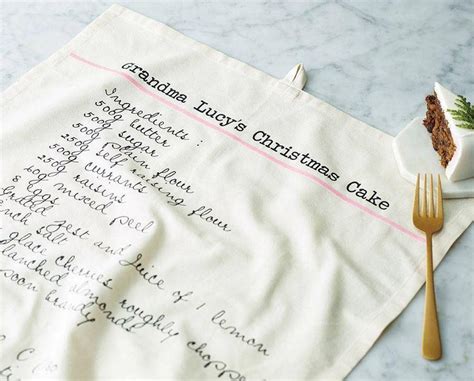 Grandma Lucy's Christmas Cake
Ingredients :
500g butter
500g sugar
500g plain flour
250g self raising flour
500g currants
250g raisins
60g mixed peel
8 eggs
Grated zest and juice of 1 lemon
salt
glacé cherries roughly
blanched almonds
spoon brandy